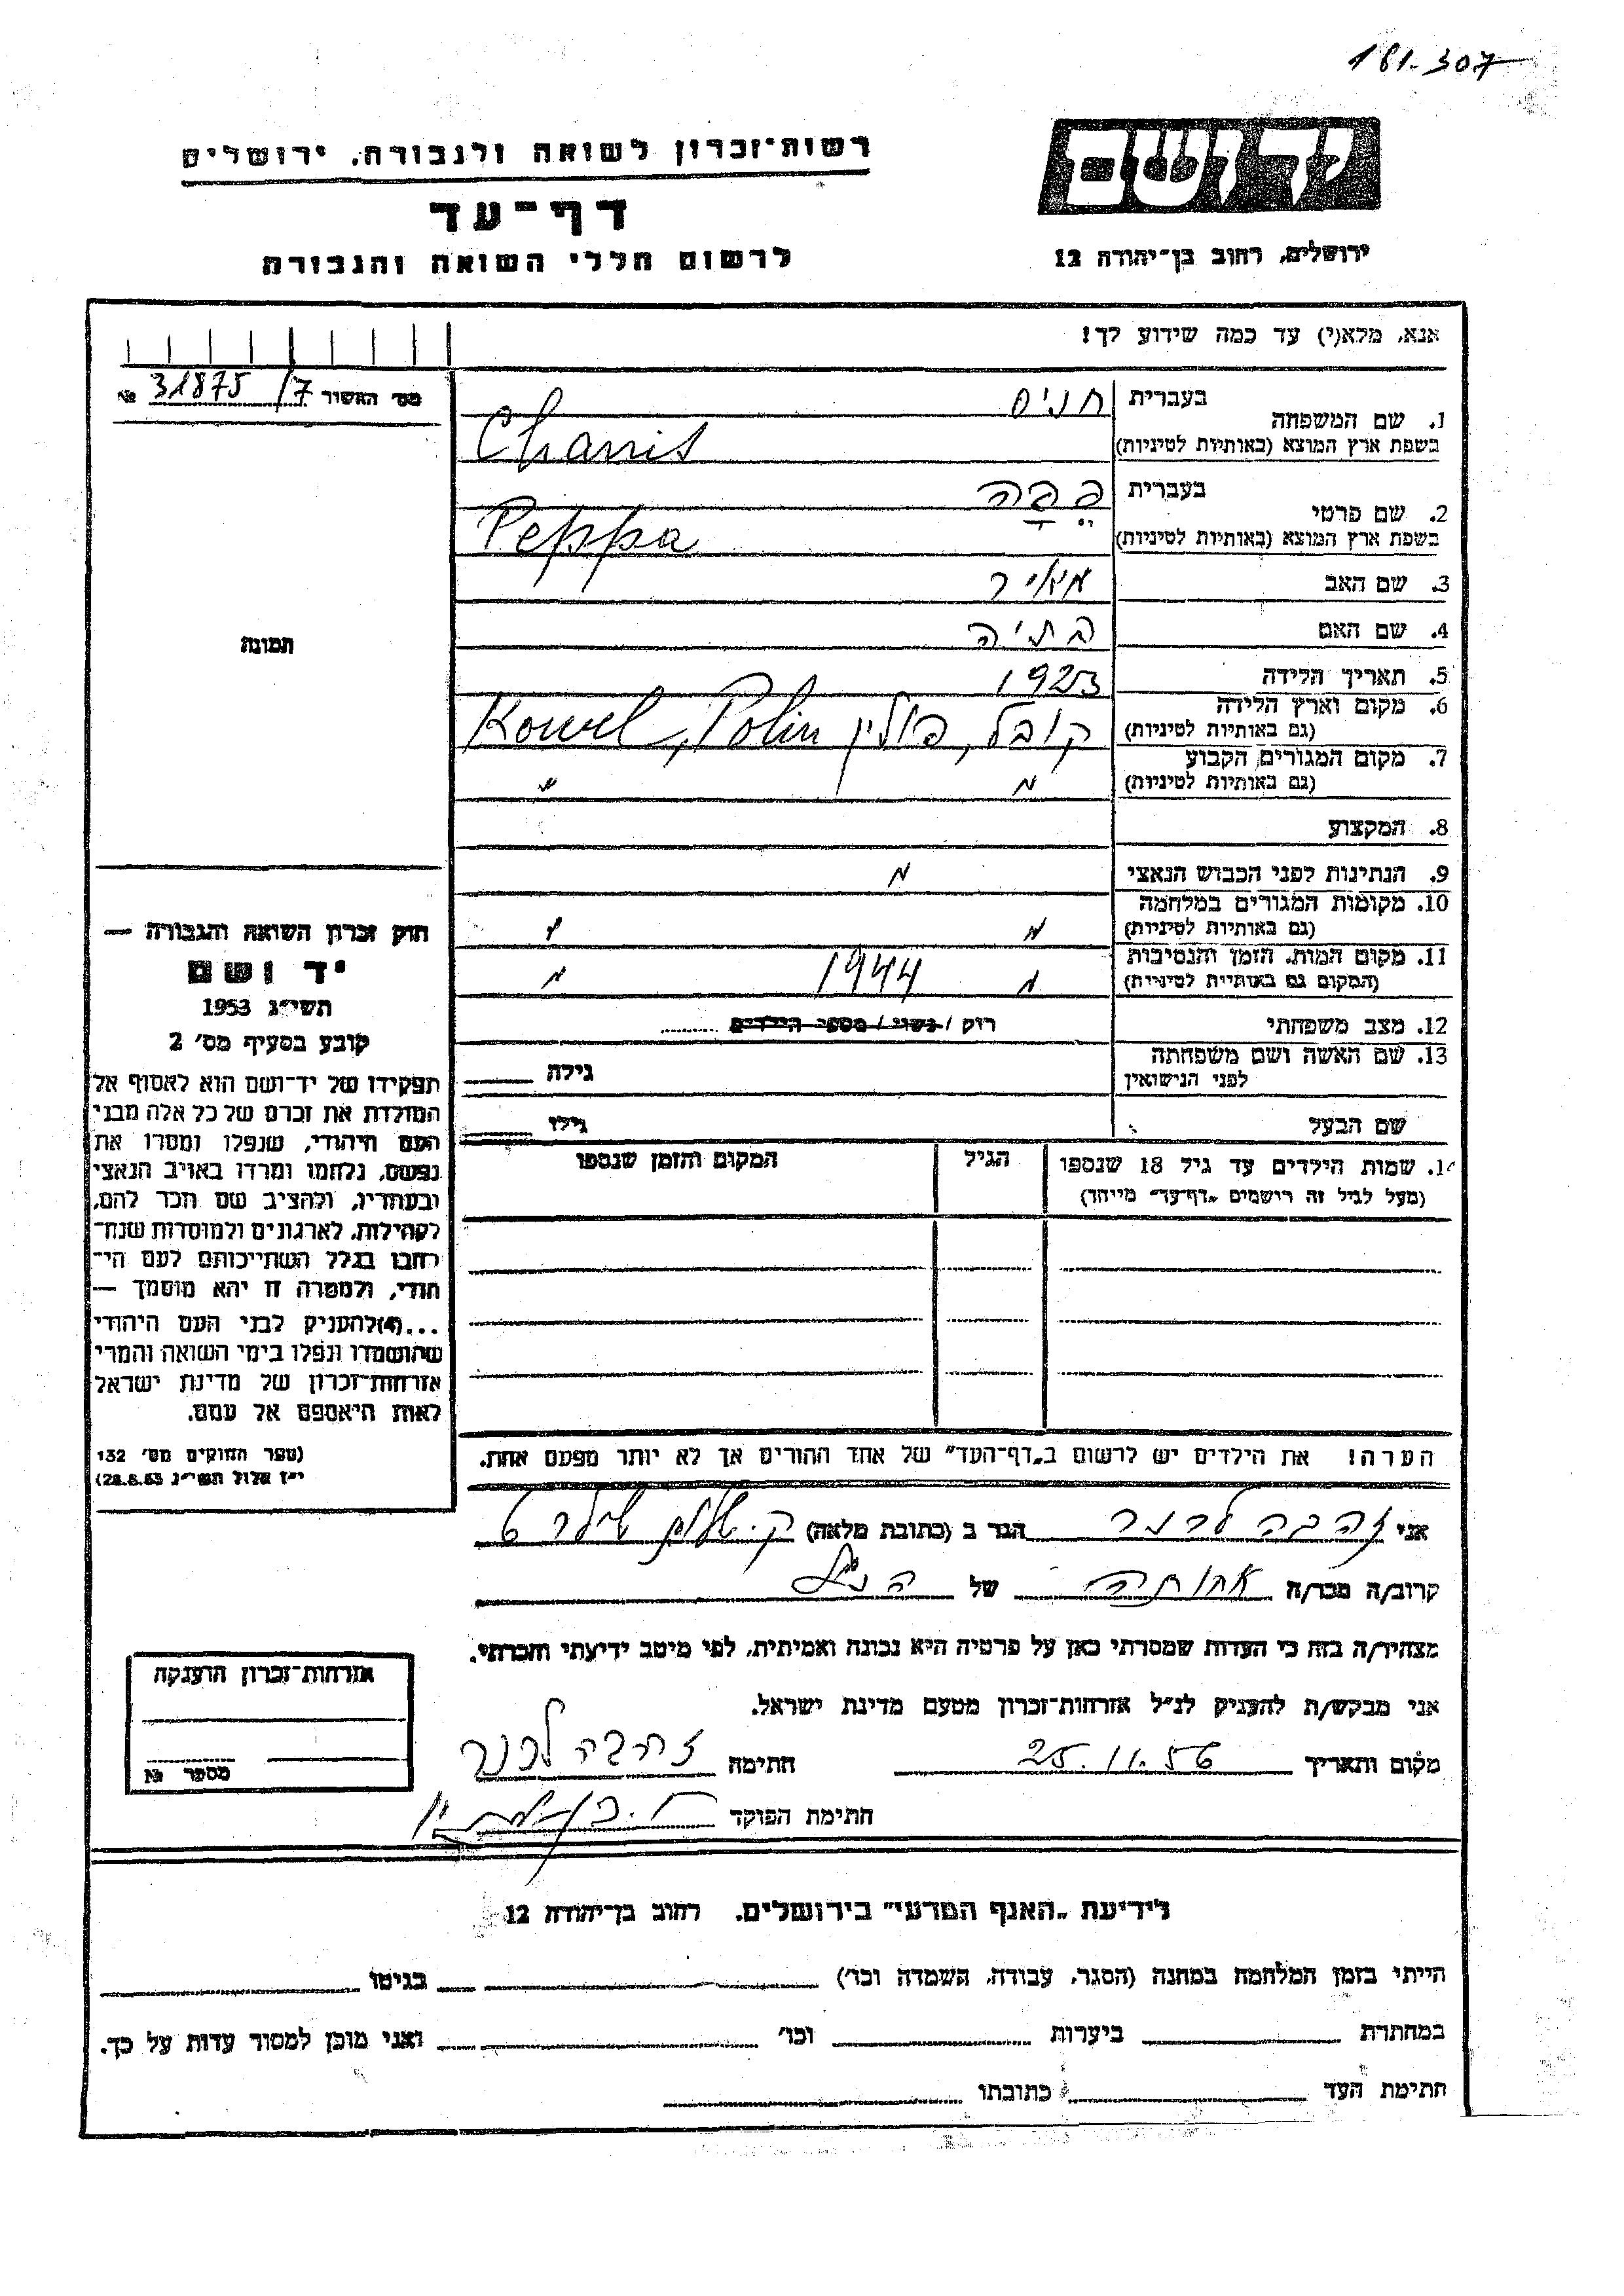 161-307
רשות־זכרון לשואה ולגבורה, ירושלים
יד ושם
דף־עד
ירושלים, רחוב בן־יהודה 12
לרשום חללי השואה והגבורה
אנא, מלא(י) עד כמה שידוע לך!
מס׳ האשור 31875/7 №
1. שם המשפחה
בעברית חניס
בשפת ארץ המוצא (באותיות לטיניות) Chanis
2. שם פרטי
בעברית פפה
בשפת ארץ המוצא (באותיות לטיניות) Peppa
3. שם האב מאיר
4. שם האם בתיה
תמונה
5. תאריך הלידה 1923
6. מקום וארץ הלידה
(גם באותיות לטיניות) קובל, פולין Kowel, Polin
7. מקום המגורים הקבוע
(גם באותיות לטיניות) " "
8. המקצוע
9. הנתינות לפני הכבוש הנאצי "
10. מקומות המגורים במלחמה
(גם באותיות לטיניות) " "
11. מקום המות, הזמן והנסיבות
(המקום גם באותיות לטיניות) " 1944 "
12. מצב משפחתי רוק / נשוי / מספר הילדים
13. שם האשה ושם משפחתה
לפני הנישואין גילה
שם הבעל גילו
14. שמות הילדים עד גיל 18 שנספו הגיל המקום והזמן שנספו
(מעל לגיל זה רישמים "דף־עד" מייחד)
חוק זכרון השואה והגבורה —
יד ושם
תשי״ג 1953
קובע בסעיף מס׳ 2
תפקידו של יד־ושם הוא לאסוף אל
המולדת את זכרם של כל אלה מבני
העם היהודי, שנפלו ומסרו את
נפשם, נלחמו ומרדו באויב הנאצי
ובעוזריו, ולהציב שם וזכר להם,
לקהילות, לארגונים ולמוסדות שנח־
רחבו בגלל השתייכותם לעם הי־
הודי, ולמטרה זו יהא מוסמך —
...(4)להעניק לבני העם היהודי
שהושמדו ונפלו בימי השואה והמרי
אזרחות־זכרון של מדינת ישראל
לאות היאספם אל עמם.
(ספר החוקים מס׳ 132
י״ז אלול תשי״ג 28.8.53)
הערה! את הילדים יש לרשום ב"דף־העד" של אחד ההורים אך לא יותר מפעם אחת.
אני זהבה לרנר הגר ב (כתובת מלאה) ק.
קרוב/ה מכר/ה אחותה של הנ״ל
מצהיר/ה בזה כי העדות שמסרתי כאן על פרטיה היא נכונה ואמיתית, לפי מיטב ידיעתי והכרתי.
אני מבקש/ת להעניק לנ״ל אזרחות־זכרון מטעם מדינת ישראל.
מקום ותאריך 25.11.56 חתימה זהבה לרנר
חתימת הפוקד
אזרחות־זכרון הוענקה
מספר №
לידיעת "האגף המדעי" בירושלים. רחוב בן־יהודה 12
הייתי בזמן המלחמה במחנה (הסגר, עבודה, השמדה וכו׳) בגיטו
במחתרת ביערות וכו׳ ואני מוכן למסור עדות על כך.
חתימת העד כתובתו